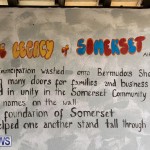 LEGACY of SOMERSET
mancipation washed onto Bermuda's Sho
many doors for families and business
d in unity in the Somerset Community
names on the wall
foundation of Somerset
elped one another stand tall through